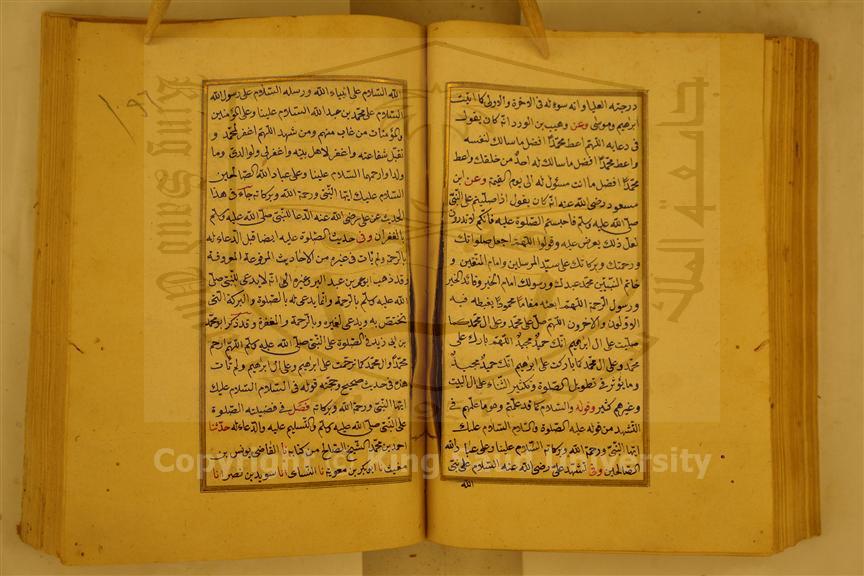 درجته العليا وآته سؤله فى الآخرة والاولى كما آتيت
ابراهيم وموسى وعن وهيب بن الورد انه كان يقول
فى دعايه اللهم اعط محمدا افضل ما سالك لنفسه
واعط محمدا افضل ما سالك له احد من خلقك واعط
محمدا افضل ما انت مسئول له الى يوم القيمة وعن ابن
مسعود رضى الله عنه انه كان يقول اذا صليتم على النبى
صلى الله عليه وسلم فاحسنوا الصلوة عليه فانكم لا تدرون
لعل ذلك يعرض عليه وقولوا اللهم اجعل صلواتك
ورحمتك وبركاتك على سيد المرسلين وامام المتقين و
خاتم النبيين محمد عبدك ورسولك امام الخير وقائد الخير
ورسول الرحمة اللهم ابعثه مقاما محمودا يغبطه فيه
الاولون والآخرون اللهم صل على محمد وعلى ال محمد كما
صليت على ال ابراهيم انك حميد مجيد اللهم بارك على
محمد وعلى ال محمد كما باركت على ابراهيم انك حميد مجيد
وما يؤثر فى تطويل الصلوة وتكثير الثناء على ال البيت
وغيرهم كثير وقوله والسلام كما قد علمتم وهو ما علمهم فى
التشهد من قوله عليه الصلوة والسلام السلام عليك
ايها النبى ورحمة الله وبركاته السلام علينا وعلى عباد الله
الصالحين وفى تشهد على رضى الله عنه السلام على نبى
الله
الله السلام على انبياء الله ورسله السلام على رسول الله
السلام على محمد بن عبد الله السلام علينا وعلى المؤمنين
والمؤمنات من غاب منهم ومن شهد اللهم اغفر لمحمد و
تقبل شفاعته واغفر لاهل بيته واغفر لى ولوالدى وما
ولدا وارحمهما السلام علينا وعلى عباد الله الصالحين
السلام عليك ايها النبى ورحمة الله وبركاته جاء فى هذا
الحديث عن على رضى الله عنه الدعا للنبى صلى الله عليه وسلم
بالغفران وفى حديث الصلوة عليه ايضا قبل الدعاء له
بالرحمة ولم يات فى غيره من الاحاديث المرفوعة المعروفة
وقد ذهب ابو عمر بن عبد البر وغيره الى انه لا يدعى للنبى صلى
الله عليه وسلم بالرحمة وانما يدعى له بالصلوة والبركة التى
تختص به ويدعى لغيره بالرحمة والمغفرة وقد ذكر ابو محمد
بن ابى زيد فى الصلوة على النبى صلى الله عليه وسلم اللهم ارحم
محمدا وال محمد كما ترحمت على ابراهيم وعلى ال ابراهيم ولم يات
هذا فى حديث صحيح وحجته قوله فى السلام السلام عليك
ايها النبى ورحمة الله وبركاته فصل فى فضيلة الصلوة
على النبى صلى الله عليه وسلم والتسليم عليه والدعاء له حدثنا
احمد بن محمد الشيخ الصالح من كتابه نا القاضى يونس بن
مغيث نا ابو بكر بن معوية نا النسائى انا سويد بن نصر انا
Copyright © King Saud University
King Saud University
جامعة الملك